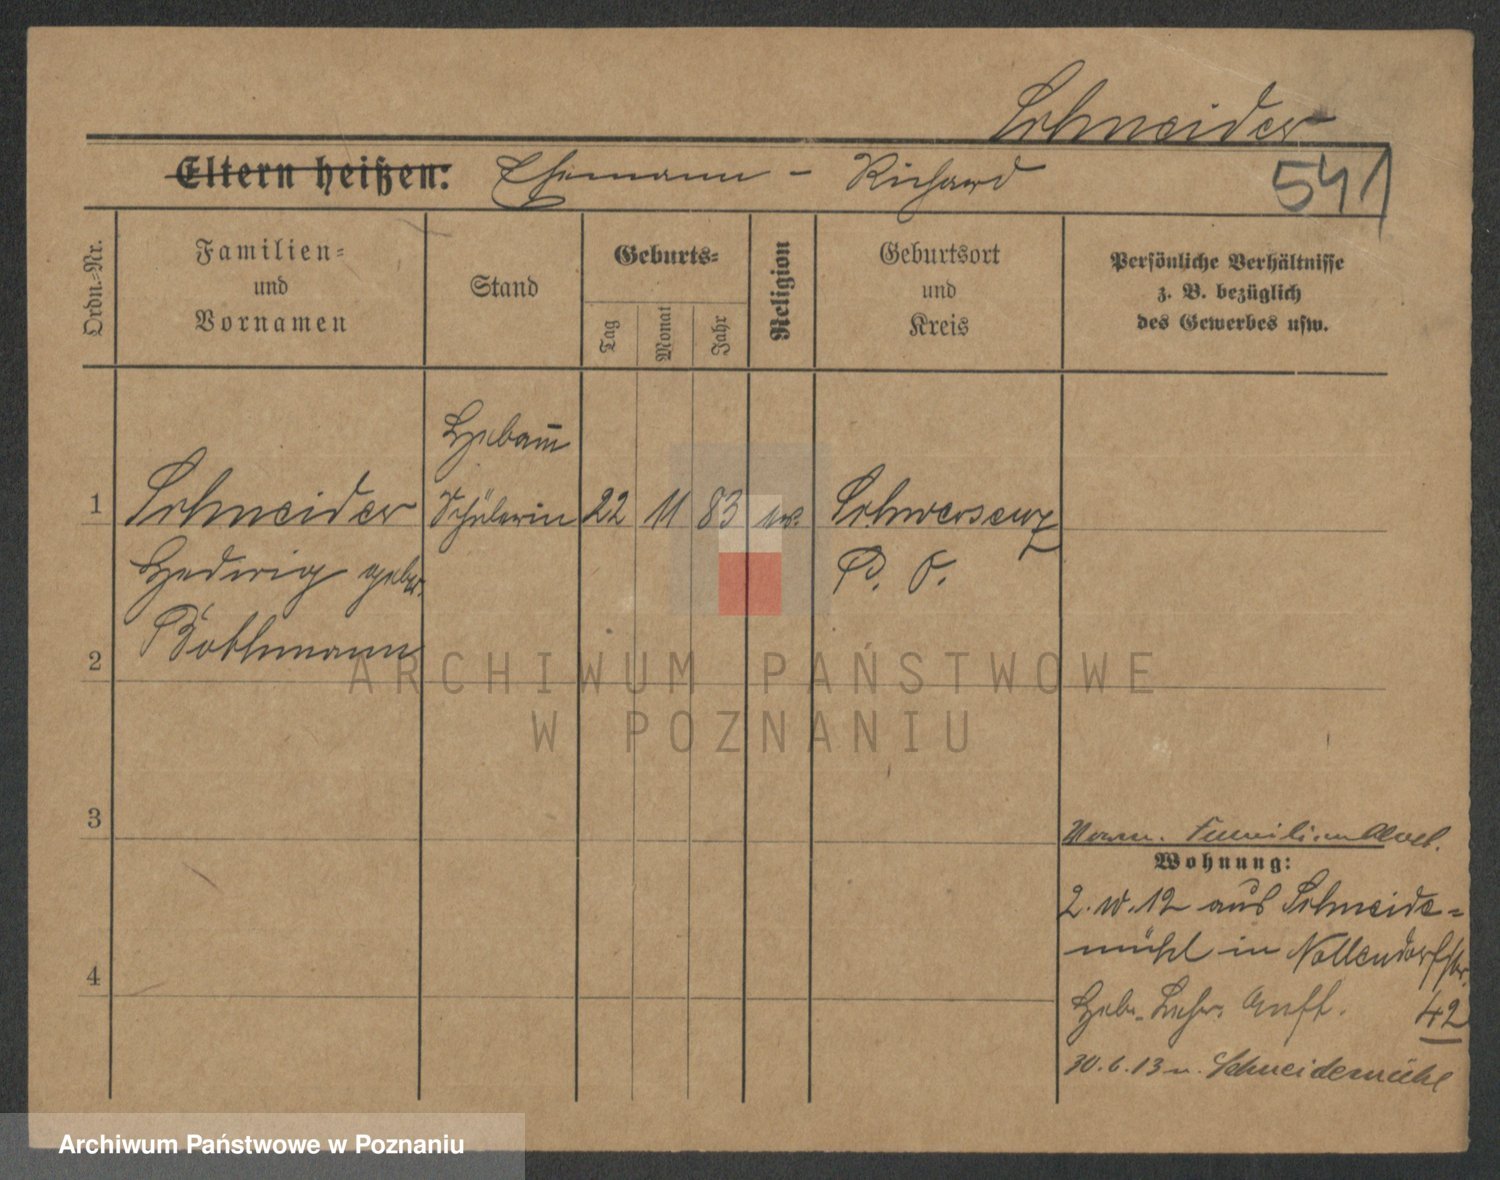 Schneider
Eltern heißen: Ehemann - Richard
541
Ordn.-Nr.
Familien=
und
Vornamen
Stand
Geburts=
Tag
Monat
Jahr
Religion
Geburtsort
und
Kreis
Persönliche Verhältnisse
z. B. bezüglich
des Gewerbes usw.
Hebam̄
1 Schneider Schülerin 22 11 83 ev. Schwersenz
Hedwig gebor. P. O.
Bothmann
2
ARCHIWUM PAŃSTWOWE
W POZNANIU
3
Wohnung:
2. IV. 12 aus Schneide=
mühl in Nollendorfstr.
4
Heb. Lehr. Anst. 42
30.6.13 n. Schneidemühl
Archiwum Państwowe w Poznaniu